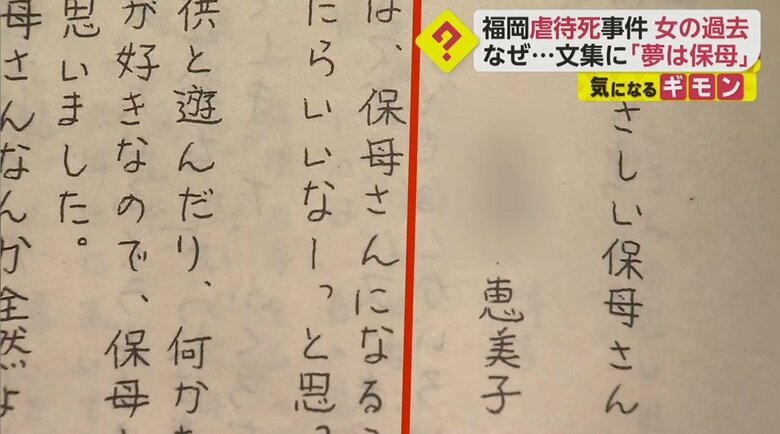 福岡虐待死事件 女の過去
なぜ…文集に「夢は保母」
気になるギモン
さしい保母さん
恵美子
は、保母さんになる
たらいいなーっと思っ
供と遊んだり、何か
が好きなので、保母
思いました。
母さんなんか全然